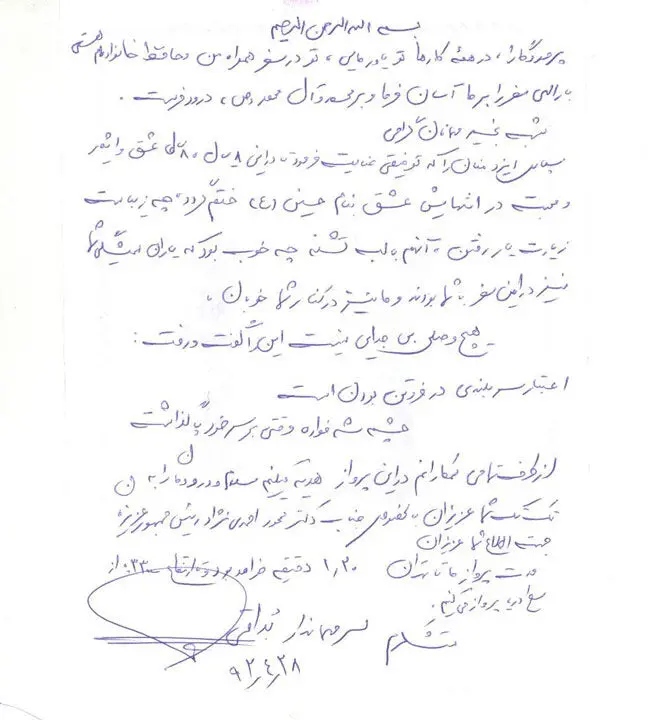 بسم الله الرحمن الرحیم
پروردگارا، در همهٔ کارها تو یاور مایی، تو در سفر همراه من و حافظ خانواده‌ام هستی
بارالهی سفر را بر ما آسان فرما و بر محمد و آل محمد (ص) درود فرست.
شب بخیر میهمانان گرامی
سپاس ایزد منان را که توفیقی عنایت فرمود تا در این ۸ سال عشق و ایثار
و محبت در انتهایش عشق بنام حسین (ع) ختم گردد، چه زیباست
زیارت یار رفتن، آنهم با لب تشنه چه خوب بود که یاران همیشگی شما
نیز در این سفر با شما بودند و ما نیز در کنار شما خوبان.
هیچ وصلی بی جدایی نیست این را گفت و رفت:
اعتبار سربلندی در فروتن بودن است
چشمه شد فواره وقتی بر سر خود پا گذاشت
از طرف همکارانم در این پرواز هدیه میکنیم سلام و درودمان را به
تک تک شما عزیزان بالخصوص جناب دکتر محمود احمدی نژاد رئیس جمهور عزیز
جهت اطلاع شما عزیزان
مدت پرواز ما تا تهران ۱٫۲۰ دقیقه خواهد بود و ارتفاع ۳۳۰۰۰ از
سطح دریا پرواز می کنیم.
متشکرم سرمهماندار
۹۲٫۴٫۲۸